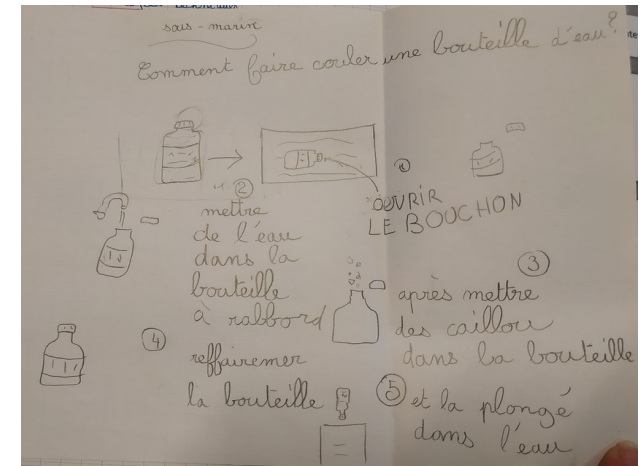 sous-marin
Comment faire couler une bouteille d'eau?
①
OUVRIR
LE BOUCHON
②
mettre
de l'eau
dans la
bouteille
à rabbord
③
après mettre
des caillou
dans la bouteille
④
reffairemer
la bouteille
⑤ et la plongé
dans l'eau